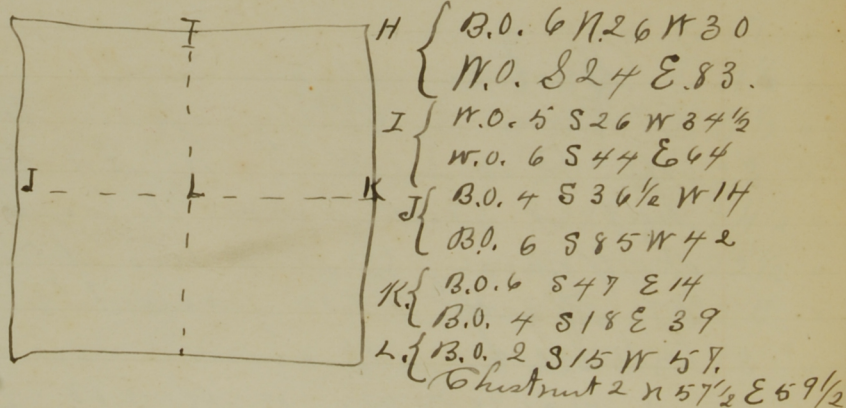 I H { B.O. 6 N.26 W 30
W.O. S24 E.83.
I { W.O. 5 S26 W 34½
W.O. 6 S44 E64
J L K
J { B.O. 4 S36½ W14
B.O. 6 S85 W 42
K. { B.O. 6 S47 E14
B.O. 4 S18 E 39
L. { B.O. 2 S15 W 57.
Chestnut 2 N 57½ E 59½